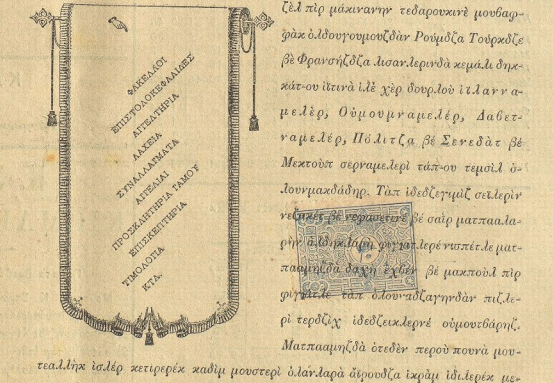 ΦΑΚΕΛΛΟΙ
ΕΠΙΣΤΟΛΟΚΕΦΑΛΙΔΕΣ
ΑΓΓΕΛΤΗΡΙΑ
ΛΑΧΕΙΑ
ΣΥΝΑΛΛΑΓΜΑΤΑ
ΑΓΓΕΛΙΑΙ
ΠΡΟΣΚΛΗΤΗΡΙΑ ΓΑΜΟΥ
ΕΠΙΣΚΕΠΤΗΡΙΑ
ΤΙΜΟΛΟΓΙΑ
ΚΤΛ.
ζὲλ πὶρ μάκινανην τεδαρουκινὲ μουβαφ-
φὰκ ὀλδουγουμουζδὰν Ρούμδζα Τούρκδζε
βὲ Φρανσήζδζα λισανλερινδὰ κεμάλι δηκ-
κάτ-ου ἰτινὰ ἰλὲ χὲρ δουρλοὺ ἰτλανν α-
μελὲρ, Οὐμουμναμελέρ, Δαβετ-
ναμελέρ, Πόλιτζα βὲ Σενεδὰτ βὲ
Μεκτοὺπ σερναμελερὶ τάπ-ου τεμσὶλ ὀ-
λουνμακδάδηρ. Τὰπ ἰδεδζεγιμὶζ σεϊλερὶν
βὲ βὲ σαὶρ ματπααλα-
ρὴν ματ-
πααμηζδὰ δαχὴ ἐχβὲν βὲ μακποὺλ πὶρ
φιγιατλε τὰπ ὀλουναδζαγηνδὰν πιζλε-
ρὶ τερδζὶχ ἰδεδζεικλερνὲ οὐμουτβάρηζ.
Ματπααμηζδὰ ὀτεδὲν περοὺ πουνὰ μου-
τεαλλὴκ ἰσλὲρ κετιρερὲκ καδὶμ μουστερὶ ὀλανλαρὰ ἀϊρουδζα ἰκρὰμ ἰδιλερὲκ με-